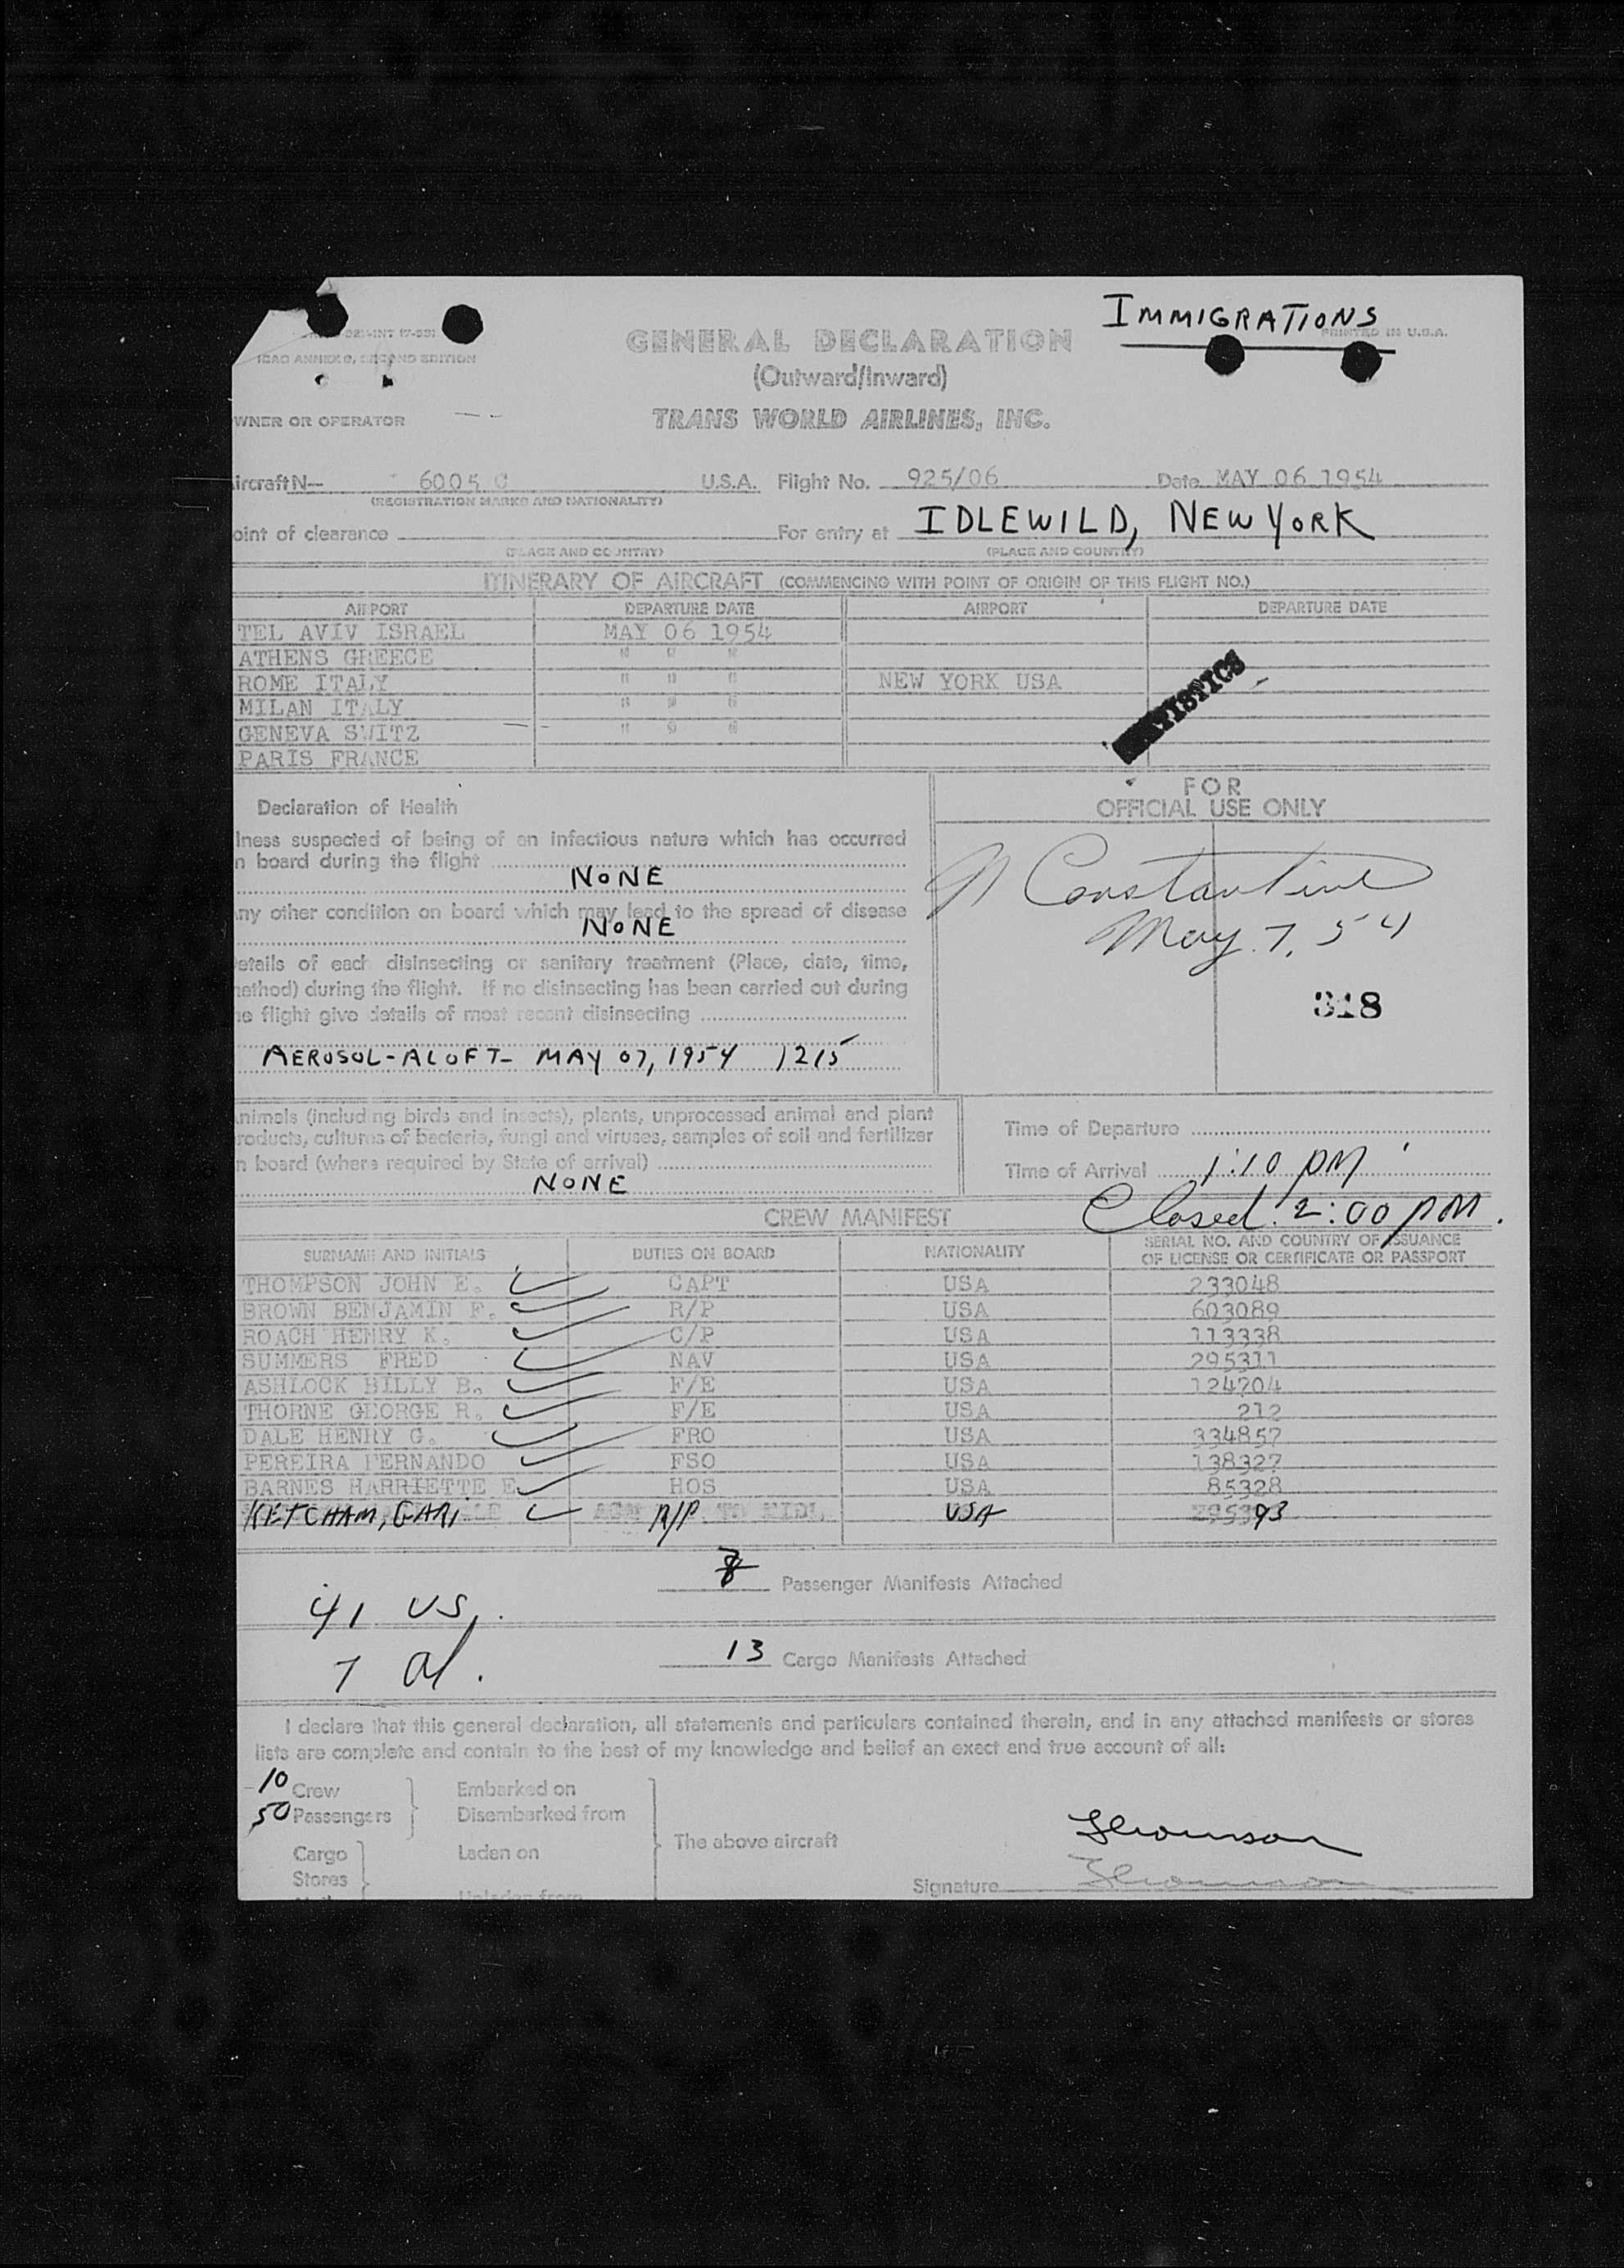 IMMIGRATIONS
PRINTED IN U.S.A.
ICAO ANNEX 9, SECOND EDITION
GENERAL DECLARATION
(Outward/Inward)
WNER OR OPERATOR
TRANS WORLD AIRLINES, INC.
ircraft N— 6005 C U.S.A. Flight No. 925/06 Date MAY 06 1954
(REGISTRATION MARKS AND NATIONALITY)
oint of clearance For entry at IDLEWILD, NEW YORK
(PLACE AND COUNTRY) (PLACE AND COUNTRY)
ITINERARY OF AIRCRAFT (COMMENCING WITH POINT OF ORIGIN OF THIS FLIGHT NO.)
AIRPORT DEPARTURE DATE AIRPORT DEPARTURE DATE
TEL AVIV ISRAEL MAY 06 1954
ATHENS GREECE " " "
ROME ITALY " " " NEW YORK USA
MILAN ITALY " " "
GENEVA SWITZ " " "
PARIS FRANCE
FOR
OFFICIAL USE ONLY
Declaration of Health
lness suspected of being of an infectious nature which has occurred
n board during the flight
NONE
ny other condition on board which may lead to the spread of disease
NONE
etails of each disinsecting or sanitary treatment (Place, date, time,
ethod) during the flight. If no disinsecting has been carried out during
he flight give details of most recent disinsecting
AEROSOL-ALOFT- MAY 07, 1954 1215
N Constantine
May 7, 54
318
nimals (including birds and insects), plants, unprocessed animal and plant
roducts, cultures of bacteria, fungi and viruses, samples of soil and fertilizer
n board (where required by State of arrival)
NONE
Time of Departure
Time of Arrival 1:10 PM
Closed 2:00 PM.
CREW MANIFEST
SURNAME AND INITIALS DUTIES ON BOARD NATIONALITY SERIAL NO. AND COUNTRY OF ISSUANCE
OF LICENSE OR CERTIFICATE OR PASSPORT
THOMPSON JOHN E. CAPT USA 233048
BROWN BENJAMIN F. R/P USA 603089
ROACH HENRY K. C/P USA 113338
SUMMERS FRED NAV USA 295311
ASHLOCK BILLY B. F/E USA 124704
THORNE GEORGE R. F/E USA 212
DALE HENRY G. FRO USA 334857
PEREIRA FERNANDO FSO USA 138327
BARNES HARRIETTE E HOS USA 85328
KETCHAM, GARI R/P USA 93
Passenger Manifests Attached
41 US.
13 Cargo Manifests Attached
7 Al.
I declare that this general declaration, all statements and particulars contained therein, and in any attached manifests or stores
lists are complete and contain to the best of my knowledge and belief an exact and true account of all:
10 Crew Embarked on
50 Passengers Disembarked from
The above aircraft
Cargo Laden on
Stores
Signature